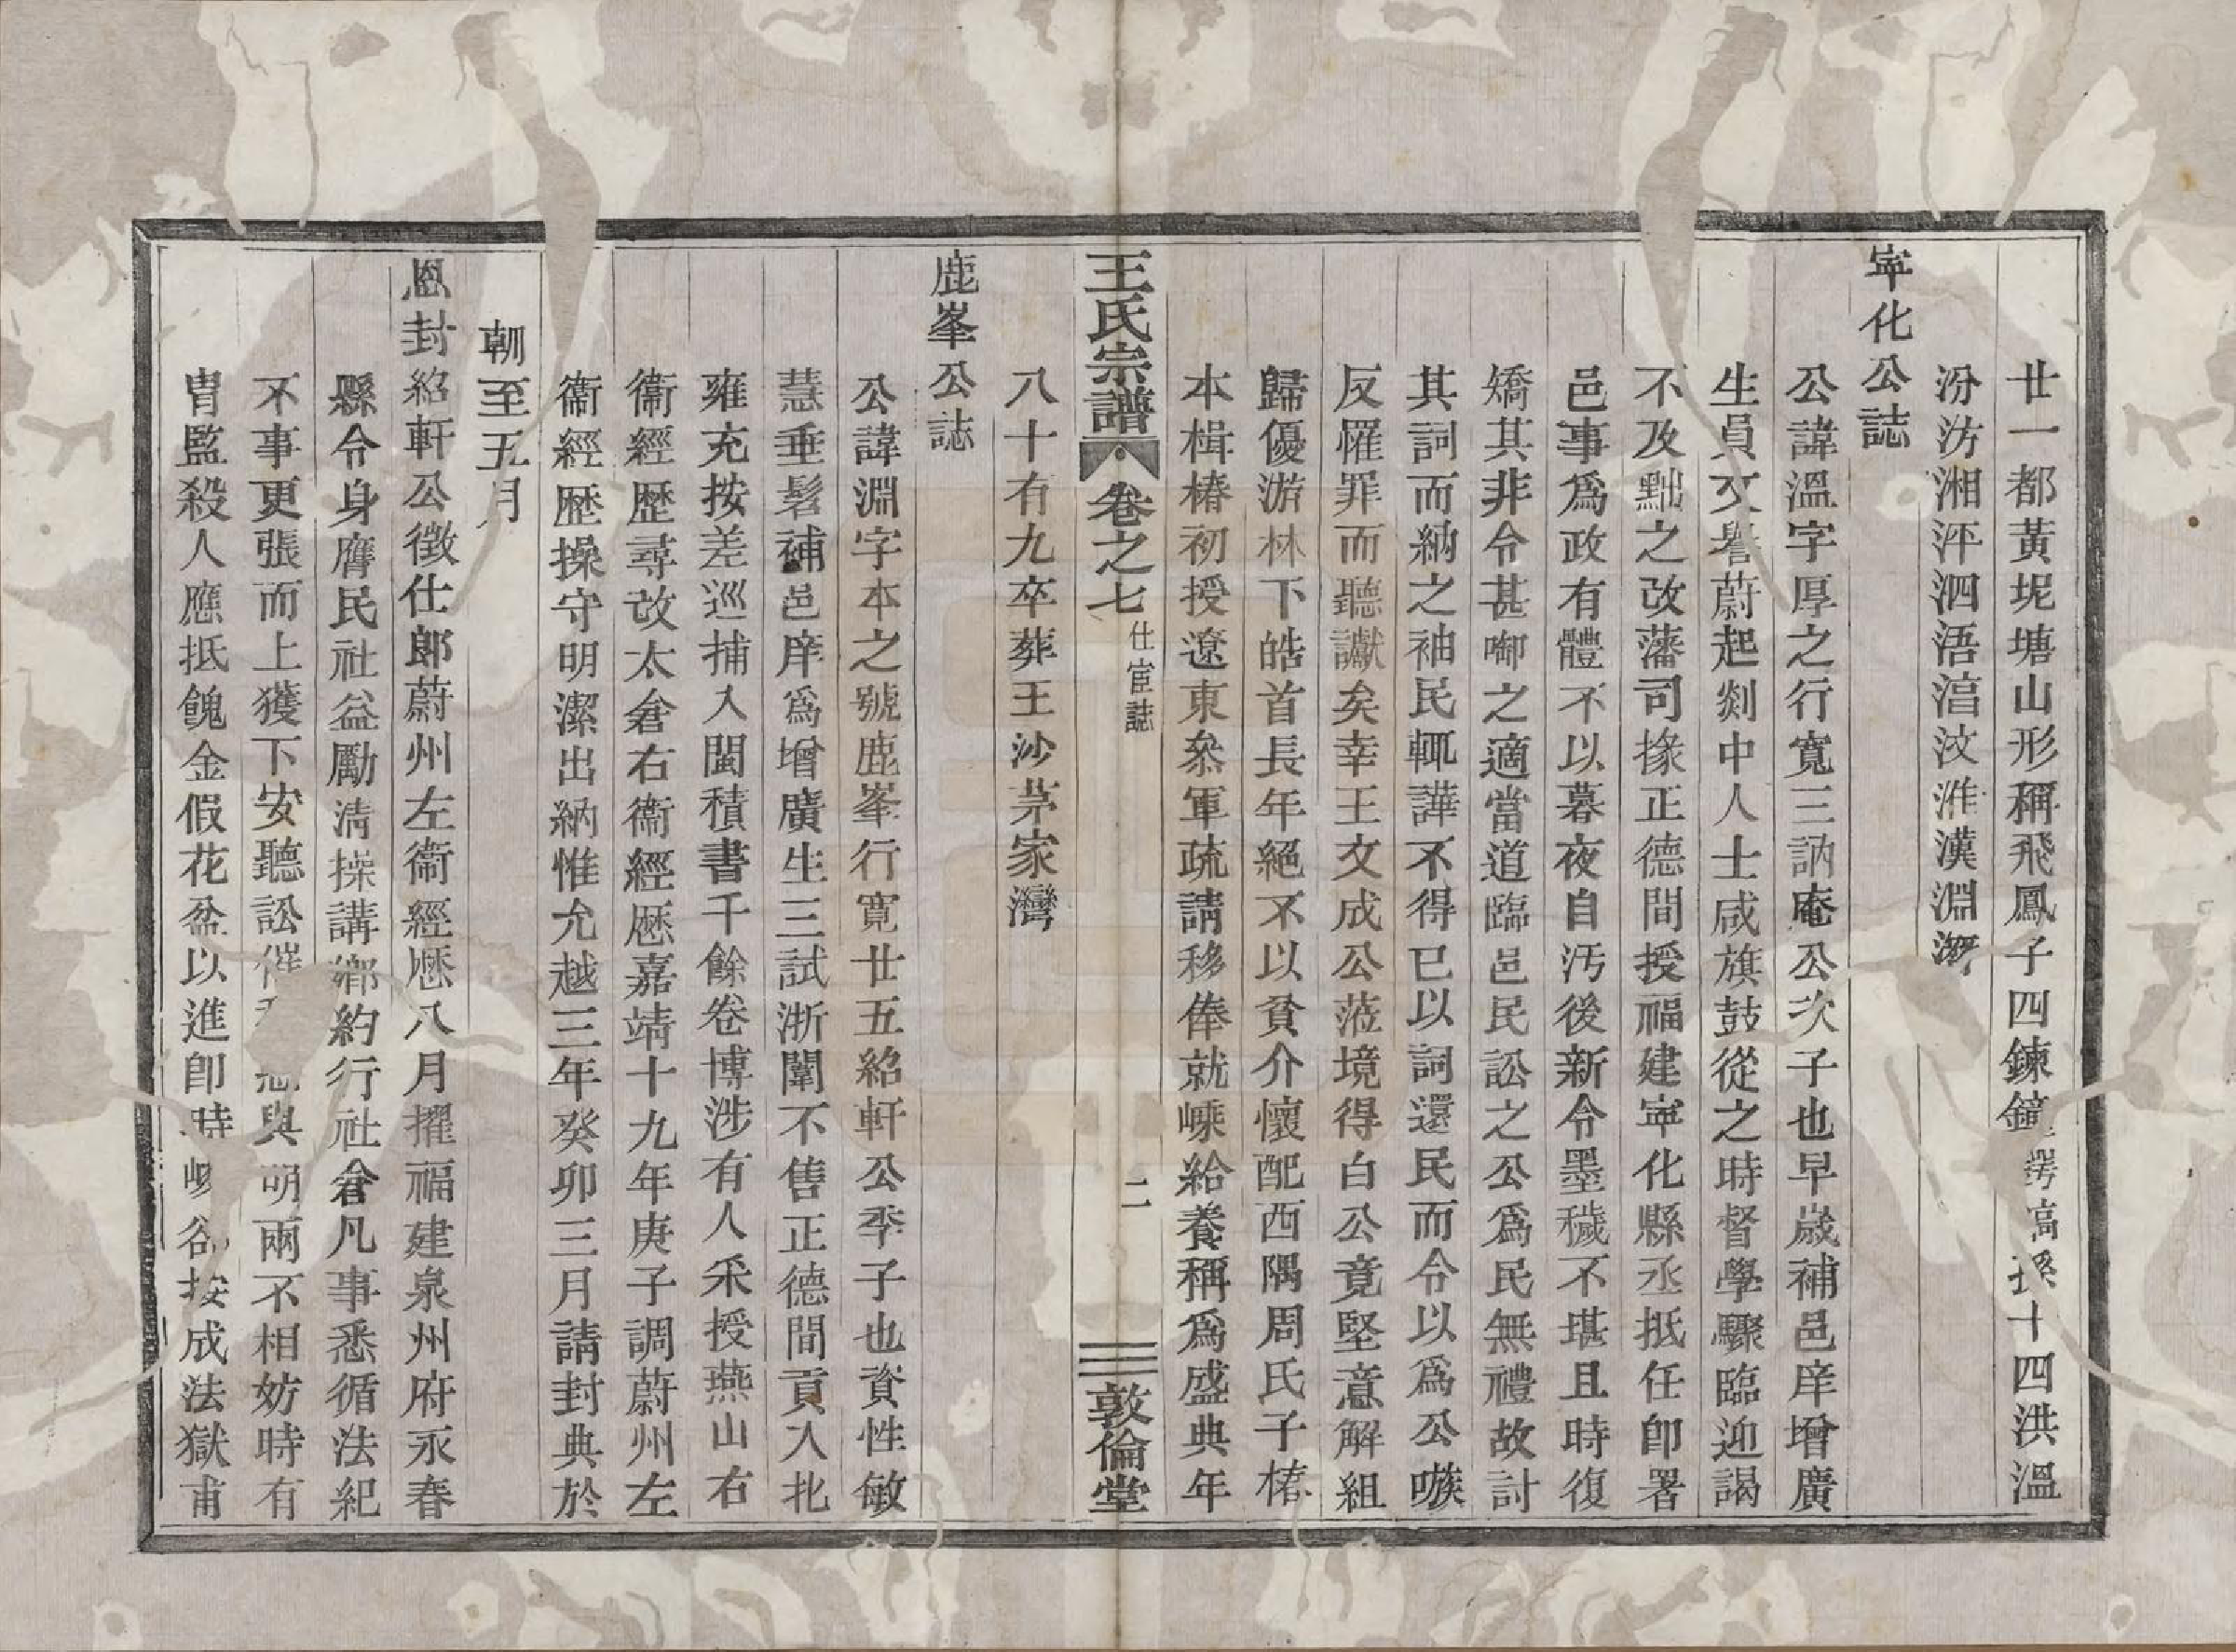 廿一都黃坭塘山形稱飛鳳子四鍊鐘鍔鎬孫十四洪溫
汾汸湘泙泗浯涫汶淮漢淵
寧化公誌
公諱溫字厚之行寬三訥庵公次子也早歲補邑庠增廣
生員文譽蔚起剡中人士咸旗鼓從之時督學驟臨迎謁
不及黜之改藩司掾正德間授福建寧化縣丞抵任卽署
邑事爲政有體不以暮夜自汚後新令墨穢不堪且時復
嬌其非令甚啣之適當道臨邑民訟之公爲民無禮故討
其詞而納之袖民輒譁不得已以詞還民而令以爲公嗾
反罹罪而聽讞矣幸王文成公蒞境得白公竟堅意解組
歸優游林下皓首長年絕不以貧介懷配西隅周氏子椿
本楫椿初授遼東叅軍疏請移俸就嵊給養稱爲盛典年
王氏宗譜 卷之七 仕宦誌 二 敦倫堂
八十有九卒葬王沙茅家灣
鹿峯公誌
公諱淵字本之號鹿峯行寬廿五紹軒公季子也資性敏
慧垂髫補邑庠爲增廣生三試浙闈不售正德間貢入北
雍充按差巡捕入閩積書千餘卷博涉有人采授燕山右
衞經歷尋改太倉右衞經歷嘉靖十九年庚子調蔚州左
衞經歷操守明潔出納惟允越三年癸卯三月請封典於
朝至五月
恩封紹軒公徵仕郎蔚州左衞經歷八月擢福建泉州府永春
縣令身膺民社益勵淸操講鄉約行社倉凡事悉循法紀
不事更張而上獲下安聽訟催與明兩不相妨時有
胄監殺人應抵餽金假花盆以進卽時峻卻按成法獄甫